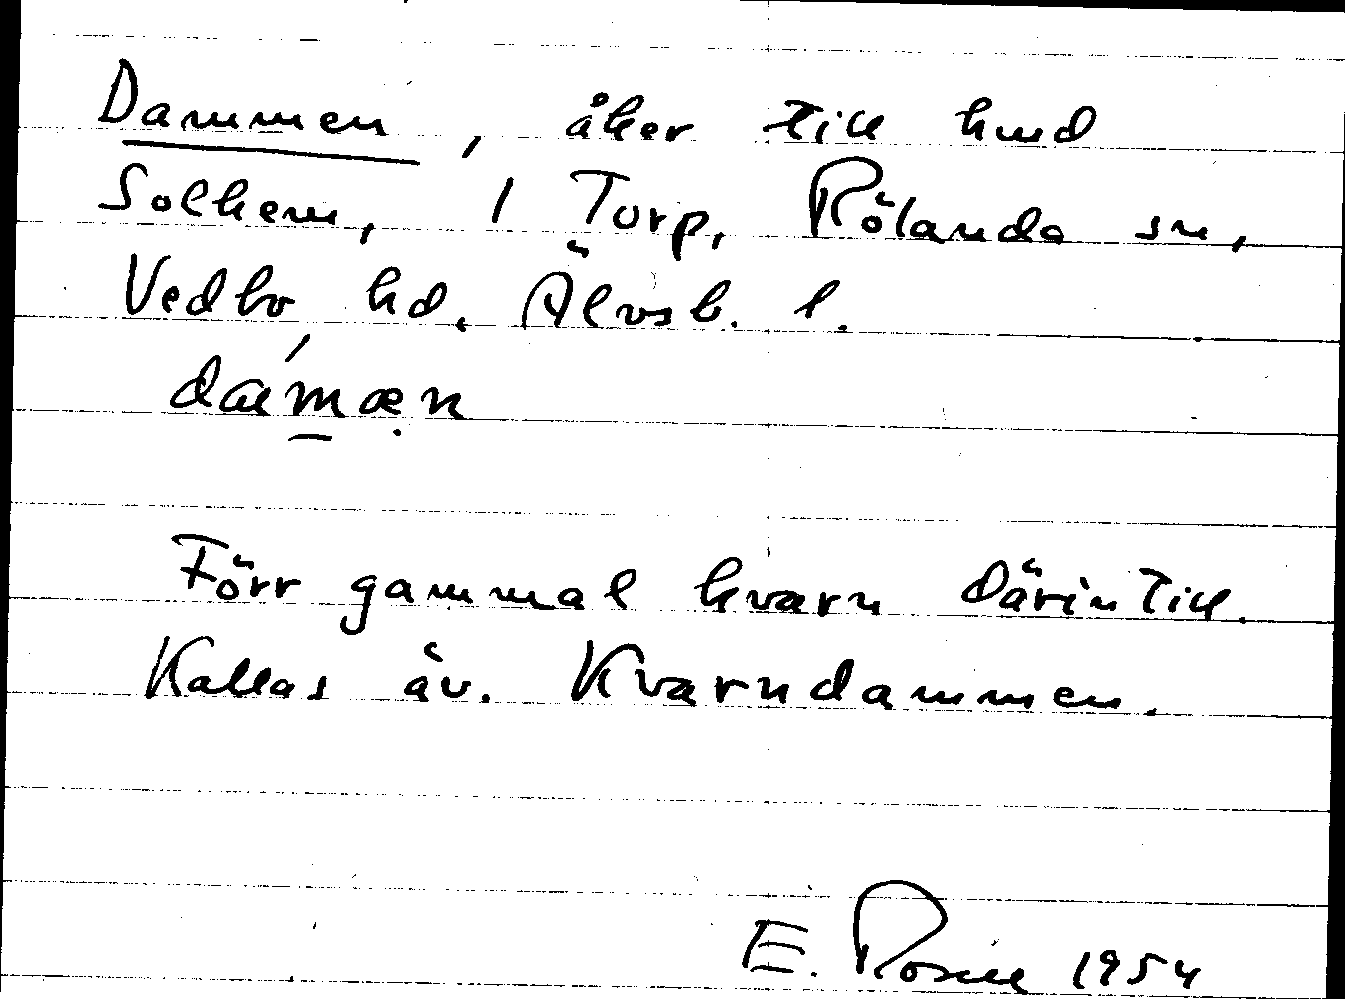 Dammen, åker till hmd
Solhem, 1 Torp, Rölanda sn,
Vedbo hd. Älvsb. l.
Förr gammal kvarn därintill.
Kallas äv. Kvarndammen.
E. 1954